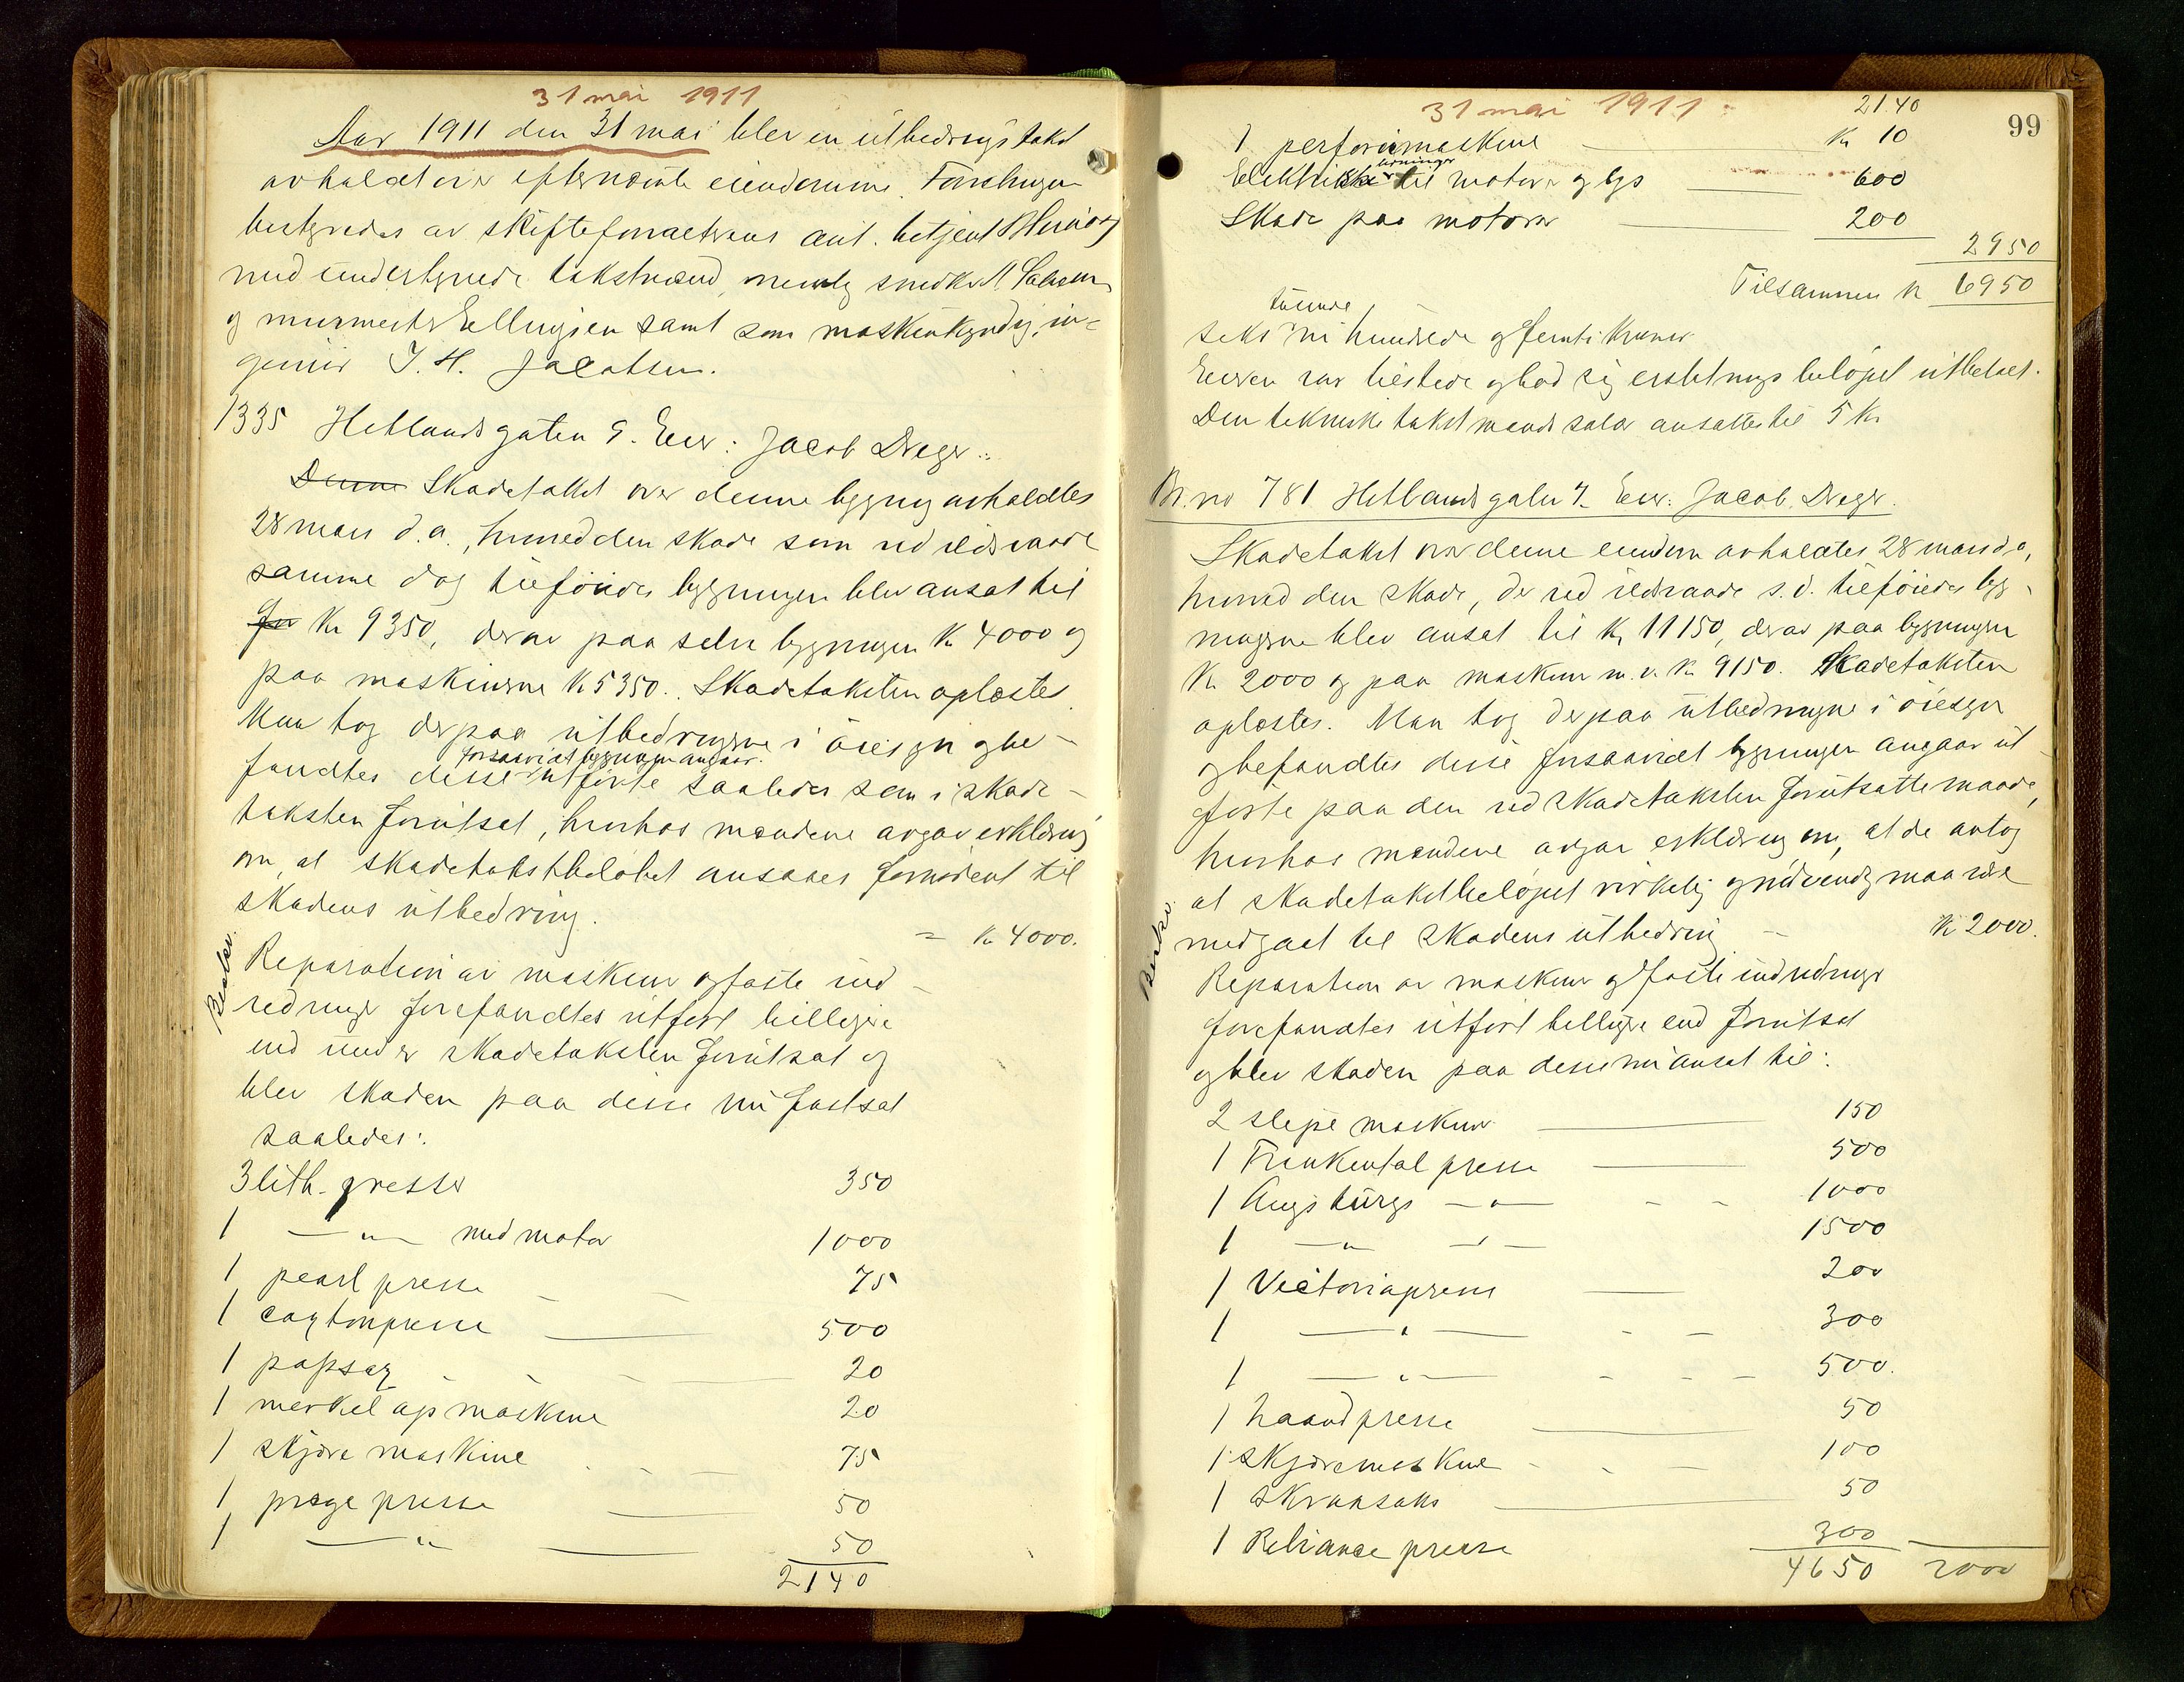 31 mai 1911
Aar 1911 den 31 mai blev en utbedringstakst
avholdt over efternævnte eiendomme. Forretningen
bestyredes av skifteforvalterens aut. betjent
med undertegnede takstmænd, nemlig snedker A.
og murmester Ellingsen samt som maskinkyndig, in-
geniør J. H. Jacobsen.
1335 Hetlandsgaten 9. Eier: Jacob Dreyer.
Denne Skadetakst over denne bygning avholdtes
28 mars d.a., hvorved den skade som ved ildsvaade
samme dag tilføiedes bygningen blev ansat til
for Kr 9350, derav paa selve bygningen Kr 4000 og
paa maskinerne Kr 5350. Skadetaksten oplæstes.
Man tog derpaa utbedringerne i øiesyn og be-
forsaavidt bygningen angaar.
fandtes disse utførte saaledes som i skade-
taksten forutsat, hvorhos mændene avgav erklæring
om, at skadetakstbeløbet ansaaes fornødent til
skadens utbedring.
= Kr 4000.
Reparation av maskiner og faste ind-
redninger forefandtes utført billigere
end under skadetaksten forutsat og
blev skaden paa disse nu fastsat
saaledes:
3 lith. presser 350
1 —"— med motor 1000
1 pearl presse 75
1 caxtonpresse 500
1 papsax 20
1 merkelapmaskine 20
1 skjære maskine 75
1 præge presse 50
1 —"— 50
2140
31 mai 1911
99
2140
1 perforermaskine Kr 10
ledninger
Elektriske til motorer og lys 600
Skade paa motorer 200
2950
Tilsammen Kr 6950
tusinde
seks ni hundrede og femti kroner
Eieren var tilstede og bad sig erstatningsbeløpet utbetalt.
Den tekniske takstmands salær ansattes til 5 Kr
Br. no 781 Hetlandsgaten 7. Eier: Jacob Dreyer.
Skadetakst over denne eiendom avholdtes 28 mars d.a,
hvorved den skade, der ved ildsvaade s.d. tilføiedes byg-
ningerne blev ansat til Kr 11150, derav paa bygningen
Kr 2000 og paa maskiner m.v. Kr 9150. Skadetaksten
oplæstes. Man tog derpaa utbedringerne i øiesyn
og befandtes disse forsaavidt bygningen angaar ut-
førte paa den ved skadetaksten forutsatte maade,
hvorhos mændene avgav erklæring om, at de antog
at skadetakstbeløpet virkelig og nødvendig maa være
medgaat til skadens utbedring - Kr 2000.
Reparation av maskiner og faste indredninger
forefandtes utført billigere end forutsat
og blev skaden paa disse nu ansat til:
2 slipe maskiner 150
1 Frankental presse 500
1 Augsburgs —"— 1000
1 —"— —"— 1500
1 Victoriapresse 200
1 —"— 300
1 —"— 500.
1 haandpresse 50
1 skjæremaskine 100
1 skraasaks 50
1 Reliance presse 300
4650 2000